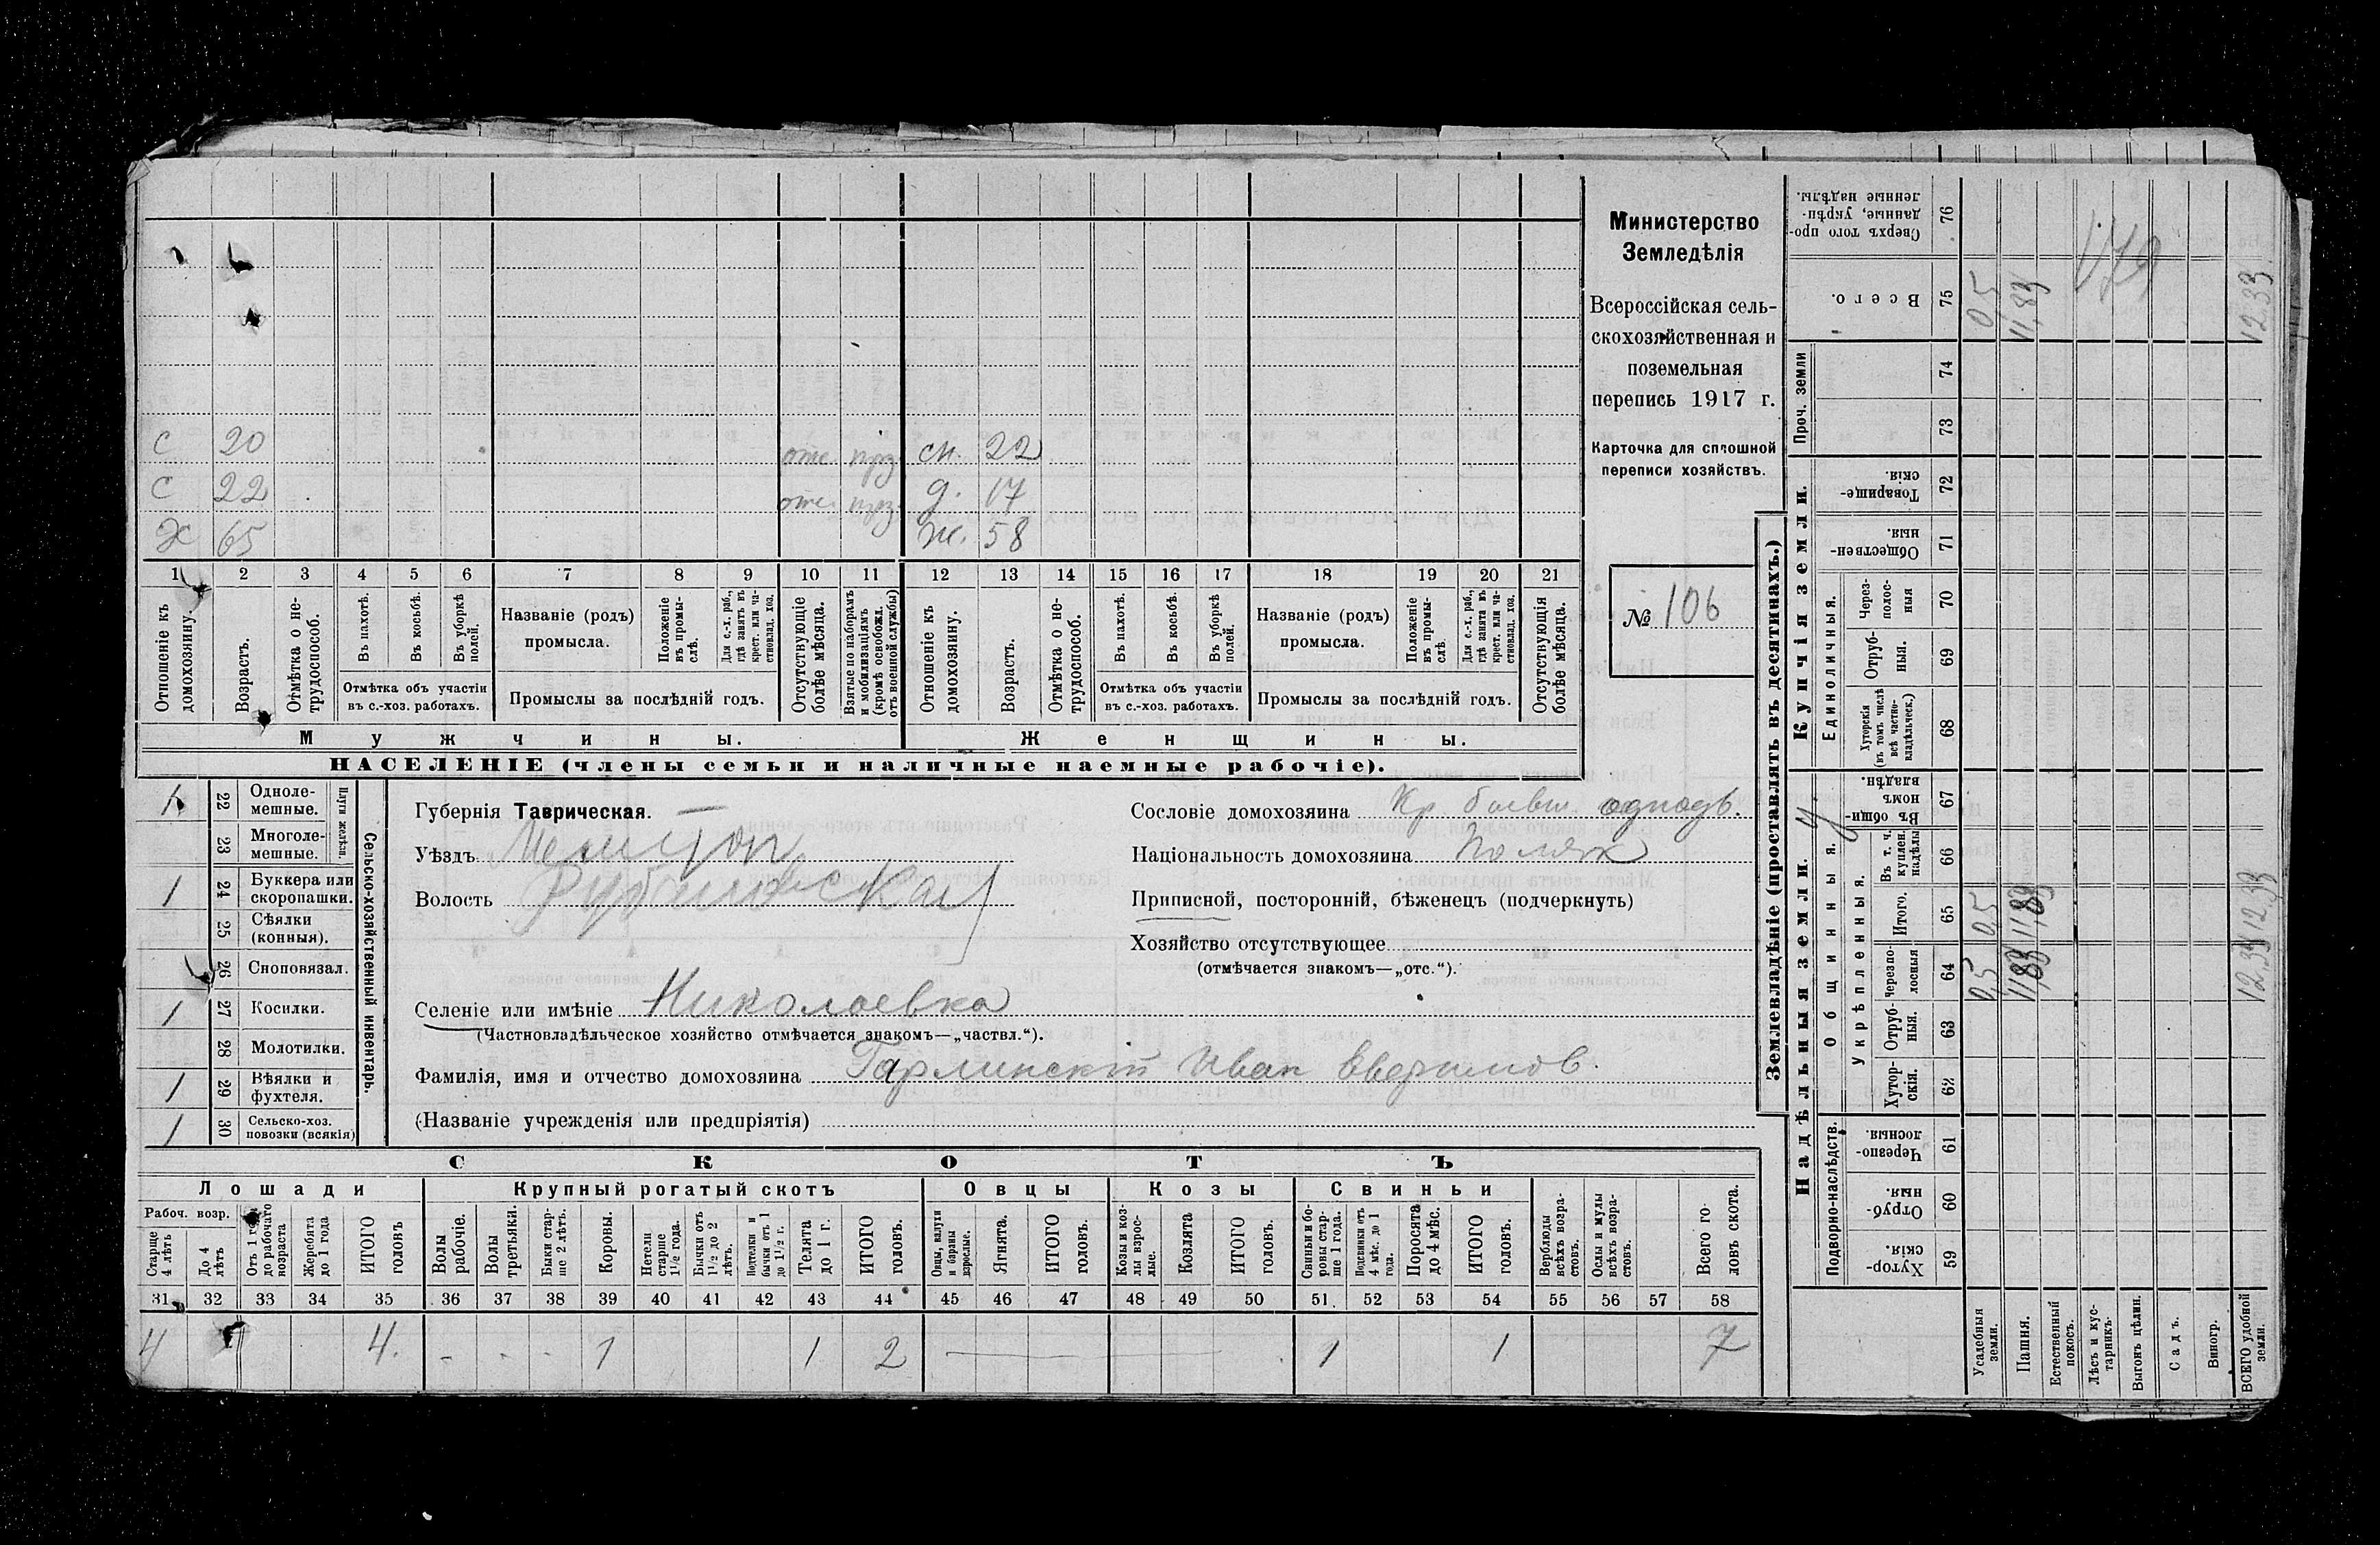 Министерство
Земледѣлія
Всероссійская сель-
скохозяйственная и
поземельная
перепись 1917 г.
Карточка для сплошной
переписи хозяйствъ.
№ 106
С 20 отс. сн. 22
С 22 отс. д. 17
Х 65 ж. 58
1 2 3 4 5 6 7 8 9 10 11 12 13 14 15 16 17 18 19 20 21
Отношеніе къ домохозяину.
Возрастъ.
Отмѣтка о не-трудоспособ.
Въ пахотѣ.
Въ косьбѣ.
Въ уборкѣ полей.
Отмѣтка объ участіи
въ с.-хоз. работахъ.
Названіе (родъ)
промысла.
Положеніе въ промы-слѣ.
Для с.-х. раб., гдѣ занятъ въ крест. или ча-стновлад. хоз.
Промыслы за послѣдній годъ.
Отсутствующіе болѣе мѣсяца.
Взятые по наборамъ и мобилизаціямъ (кромѣ освобожл. отъ военной службы)
Отношеніе къ домохозяину.
Возрастъ.
Отмѣтка о не-трудоспособ.
Въ пахотѣ.
Въ косьбѣ.
Въ уборкѣ полей.
Отмѣтка объ участіи
въ с.-хоз. работахъ.
Названіе (родъ)
промысла.
Положеніе въ промы-слѣ
Для с.-х. раб., гдѣ занята въ крест. или ча-стновлад. хоз.
Промыслы за послѣдній годъ.
Отсутствующія болѣе мѣсяца.
Мужчины.
Женщины.
НАСЕЛЕНІЕ (члены семьи и наличные наемные рабочіе).
22 Одноле-мешные.
23 Многоле-мешные.
Плуги желѣзн.
1 24 Буккера или скоропашки.
25 Сѣялки (конныя).
26 Сноповязал.
1 27 Косилки.
28 Молотилки.
1 29 Вѣялки и фухтеля.
1 30 Сельско-хоз. повозки (всякія)
Сельско-хозяйственный инвентарь.
Губернія Таврическая.
Уѣздъ Мелитоп
Волость
Селеніе или имѣніе Николаевка
(Частновладѣльческое хозяйство отмѣчается знакомъ—„частвл.“).
Фамилія, имя и отчество домохозяина Гарлинскій Иван
(Названіе учрежденія или предпріятія)
Сословіе домохозяина Кр. бывш. однодв.
Національность домохозяина Поляк
Приписной, посторонній, бѣженецъ (подчеркнуть)
Хозяйство отсутствующее
(отмѣчается знакомъ—„отс.“).
СКОТЪ
Лошади
Крупный рогатый скотъ
Овцы
Козы
Свиньи
Рабоч. возр.
Старше 4 лѣтъ
До 4 лѣтъ
Отъ 1 года до рабочаго возраста
Жеребята до 1 года
ИТОГО головъ
Волы рабочіе.
Волы третьяки.
Быки стар-ше 2 лѣтъ.
Коровы.
Нетели старше 1½ года.
Бычки отъ 1½ до 2 лѣтъ.
Подтелки и бычки отъ 1 до 1½ г.
Телята до 1 г.
ИТОГО головъ.
Овцы, валухи и бараны взрослые.
Ягнята.
ИТОГО головъ.
Козы и коз-лы взрос-лые.
Козлята
ИТОГО головъ.
Свиньи и бо-ровы стар-ше 1 года.
Подсвинки отъ 4 мѣс. до 1 года.
Поросята до 4 мѣс.
ИТОГО головъ.
Верблюды всѣхъ возра-стовъ.
Ослы и мулы всѣхъ возра-стовъ.
Всего го-ловъ скота.
31 32 33 34 35 36 37 38 39 40 41 42 43 44 45 46 47 48 49 50 51 52 53 54 55 56 57 58
4 4. - - - 1 1 2 1 1 7
Землевладѣніе (проставлять въ десятинахъ.)
Надѣльныя земли.
Купчія земли.
Проч. земли
Подворно-наслѣдств.
Общинныя.
Укрѣпленныя.
Единоличныя.
Хутор-скія. 59
Отруб-ныя. 60
Черезпо-лосныя. 61
Хутор-скія. 62
Отруб-ныя. 63
Черезпо-лосныя 64
Итого. 65
Въ т. ч. куплен. надѣлы 66
Въ общи-номъ владѣн. 67
Хуторскія (въ томъ числѣ всѣ частно-владѣльческ.) 68
Отруб-ныя. 69
Через-полос-ныя 70
Обществен-ныя. 71
Товарище-скія 72
73
74
Всего. 75
Сверхъ того про-данные, укрѣп-ленные надѣлы. 76
Усадебныя земли. 0,5 05 0,5
Пашня. 11,83 11,83 11,83
Естественный покосъ.
Лѣсъ и кус-тарникъ.
Выгонъ цѣлин.
Садъ.
Виногр.
ВСЕГО удобной земли. 12.33 12.33 12.33
179